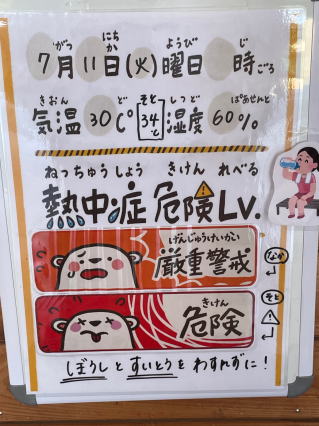 がつ にち か ようび じ
7月11日(火)曜日 時ごろ
きおん ど そと しつど ぱあせんと
気温30℃ 34℃ 湿度60%
ねっちゅうしょう きけん れべる
熱中症 危険⚠Lv.
げんじゅうけいかい
厳重警戒
なか
きけん
危険
そと
ぼうしとすいとうをわすれずに!